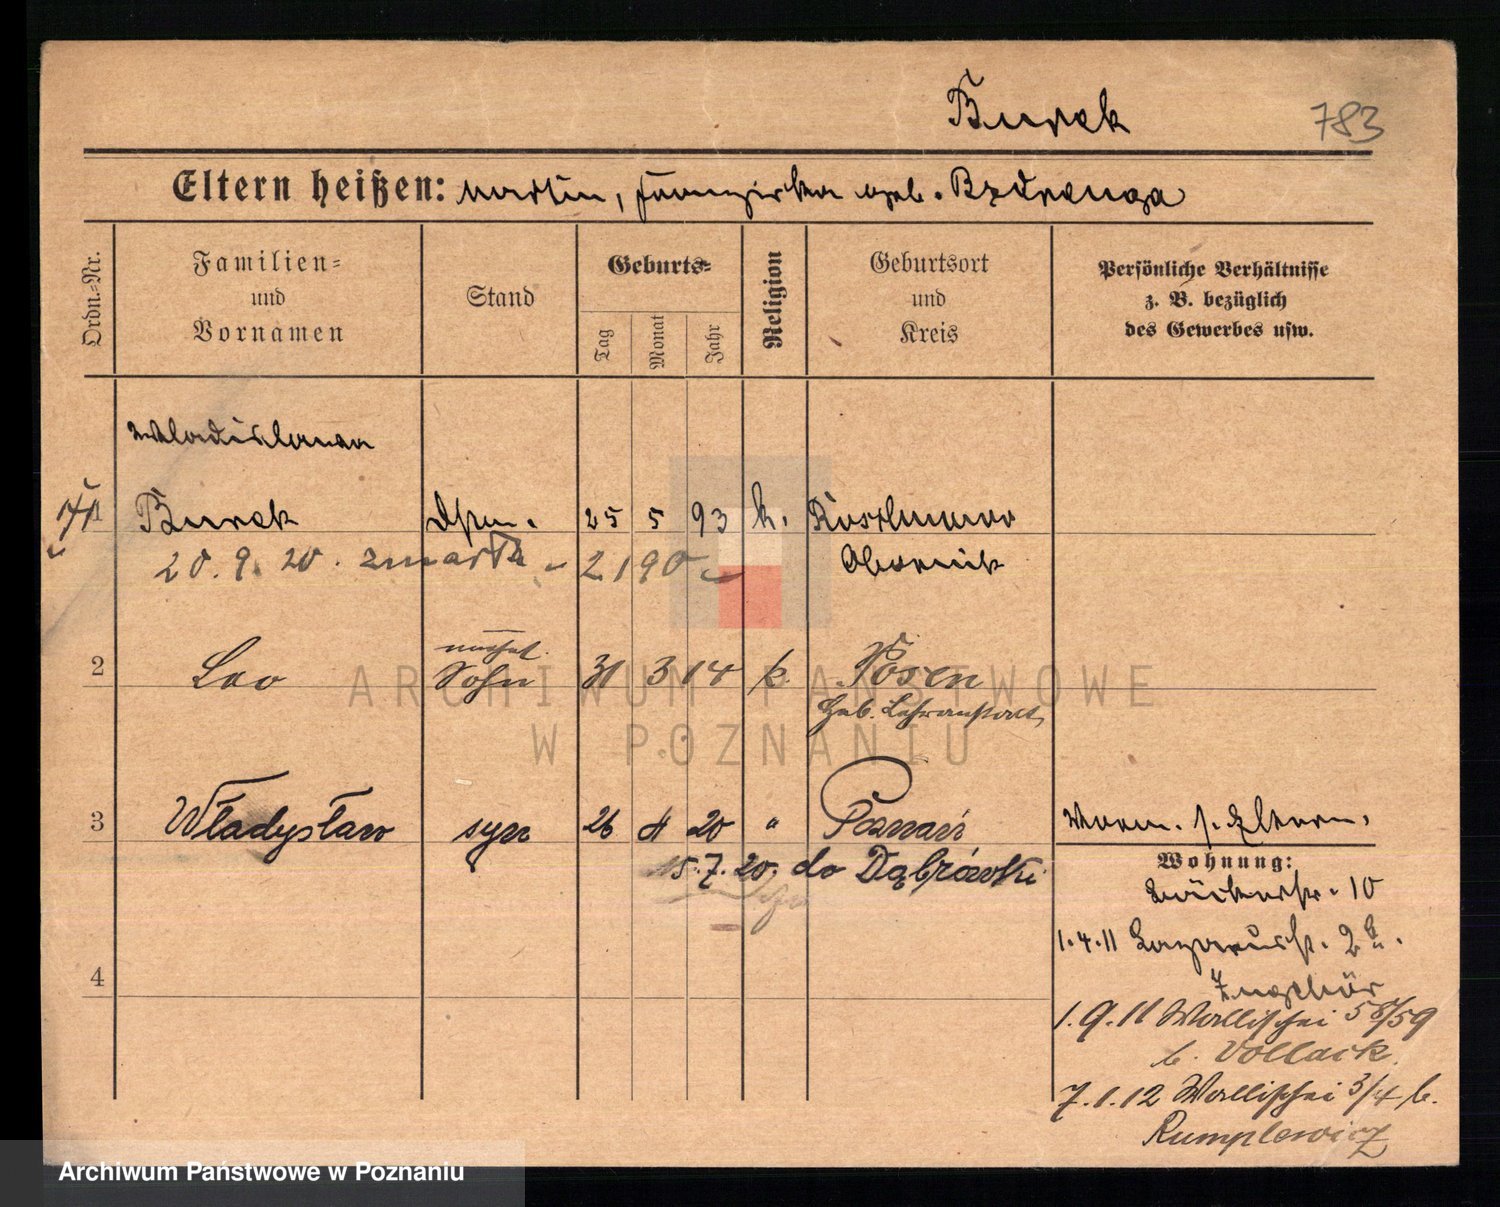 Burek 783
Eltern heißen: Martin, Franziska geb. Bzdrenga
Ordn.=Nr.
Familien=
und
Vornamen
Stand
Geburts=
Tag
Monat
Jahr
Religion
Geburtsort
und
Kreis
Persönliche Verhältnisse
z. B. bezüglich
des Gewerbes usw.
Wladislawa
1 Burek 25 5 93 k.
20. 9. 20. zmarła 2190
Obornik
2 Leo Sohn 31 3 14 k. Posen
unehel.
Heb. Lehranstalt
3 Władysław syn 26 4 20 " Poznań
15.7.20. do Dąbrówki
4
Wohnung:
Bäckerstr. 10
1.4.11 Lazarusstr. 2
1.9.11 Wallischei 58/59
b. Vollack
7.1.12 Wallischei 3/4 b.
Rumplewicz
ARCHIWUM PAŃSTWOWE
W POZNANIU
Archiwum Państwowe w Poznaniu